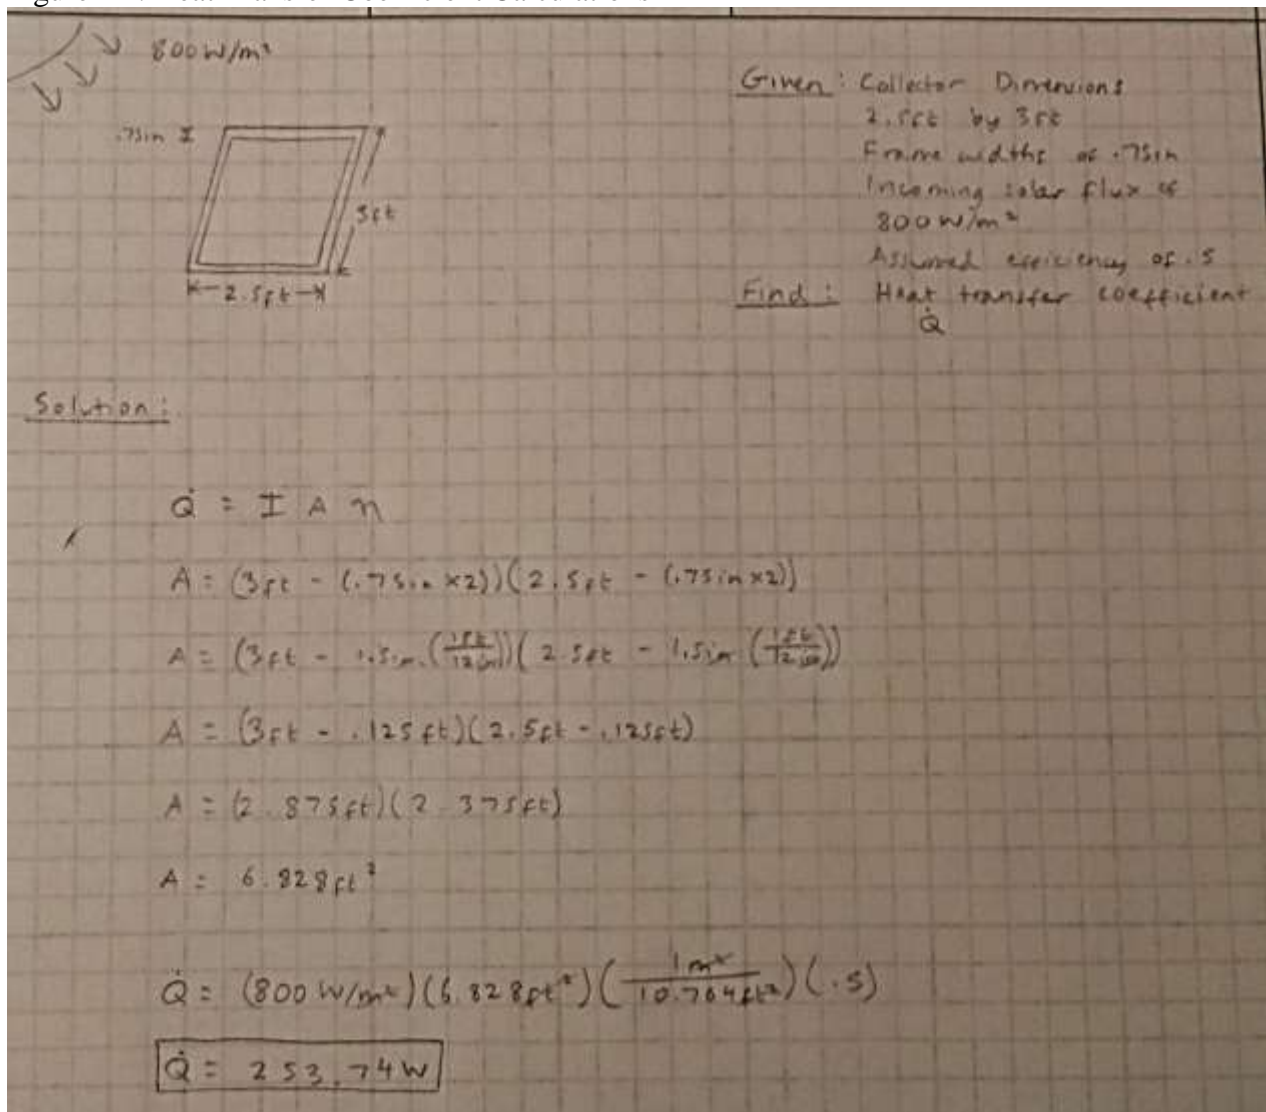 800 W/m²
.75in
3ft
2.5ft
Given: Collector Dimensions
2.5ft by 3ft
Frame widths of .75in
Incoming solar flux of
800 W/m²
Assumed efficiency of .5
Find: Heat transfer coefficient
Q̇
Solution:
Q̇ = I A η
A = (3ft - (.75in x2))(2.5ft - (.75in x2))
A = (3ft - 1.5in (1ft/12in))(2.5ft - 1.5in (1ft/12in))
A = (3ft - .125ft)(2.5ft - .125ft)
A = (2.875ft)(2.375ft)
A = 6.828ft²
Q̇ = (800 W/m²)(6.828ft²)(1m²/10.764ft²)(.5)
Q̇ = 253.74W